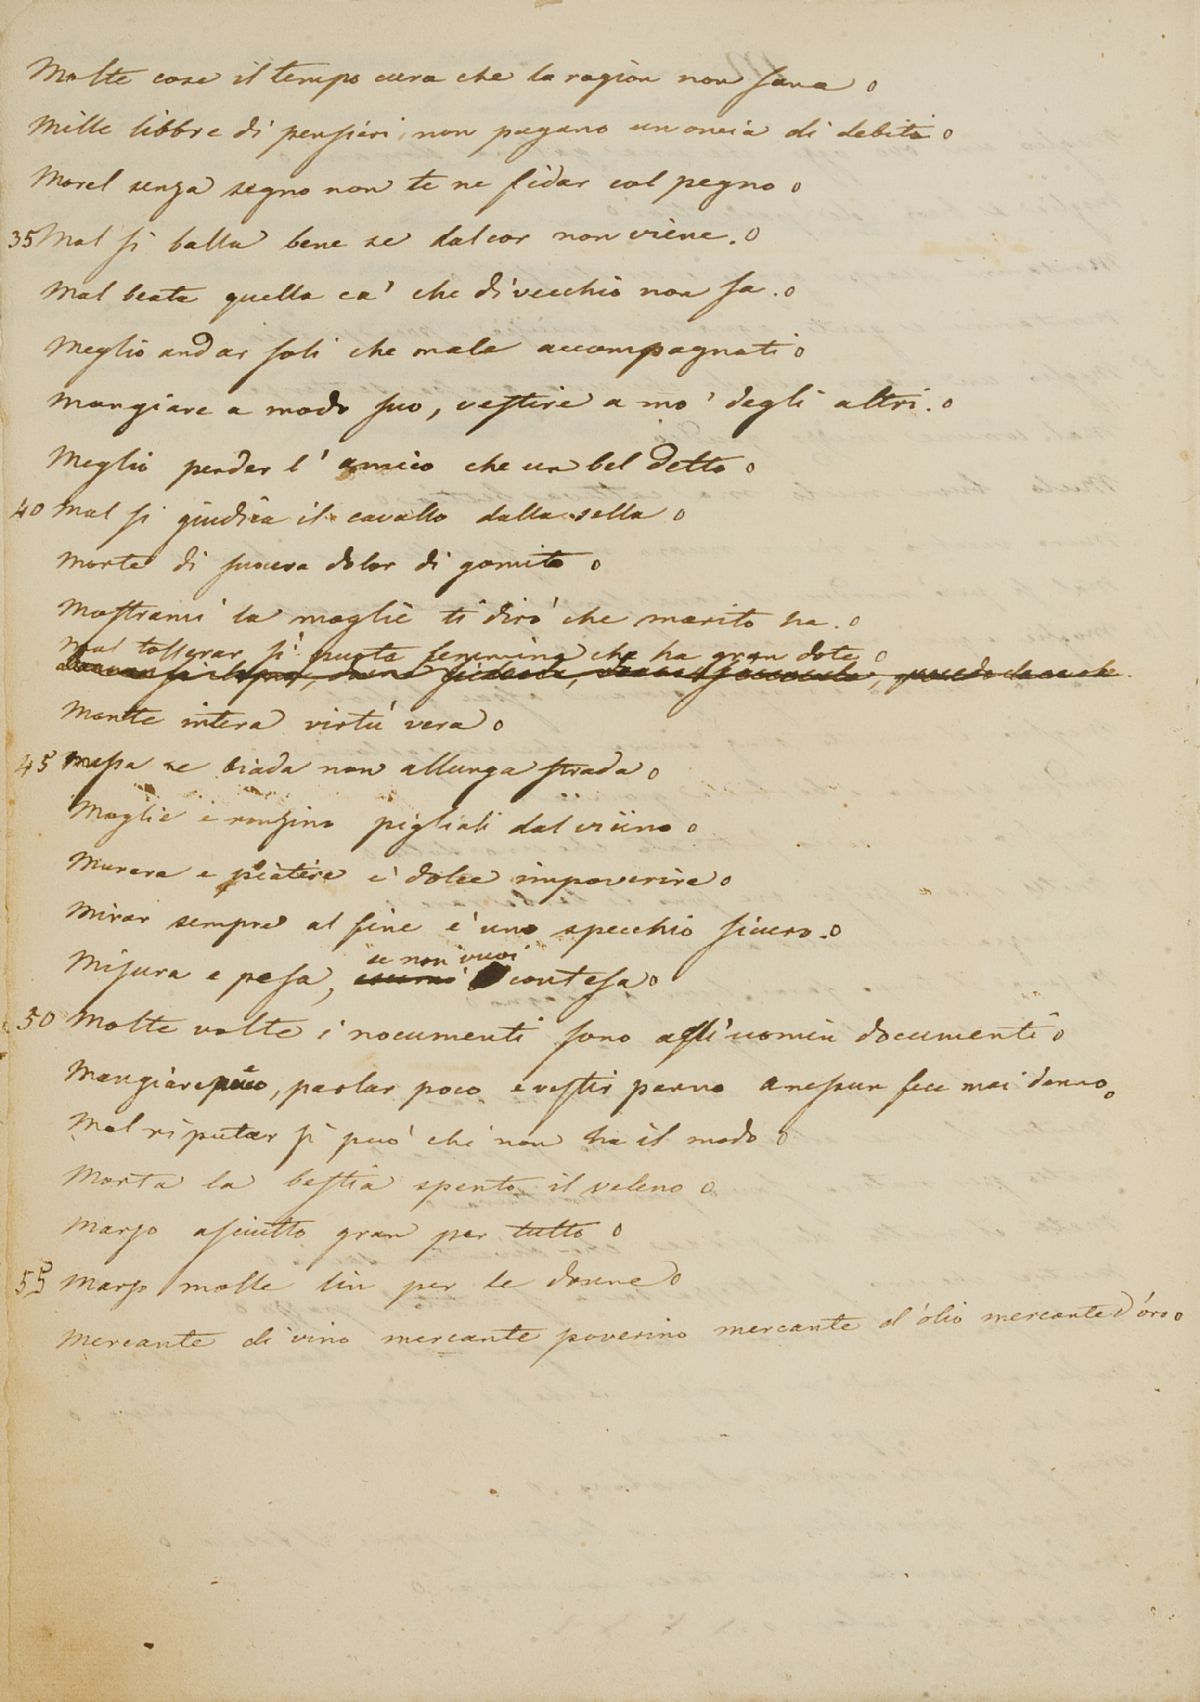 Molte cose il tempo cura che la ragion non sana o
Mille libbre di pensieri non pagano un oncia di debito o
Morel senza segno non te ne fidar col pegno o
35 Mal si balla bene se dal cor non viene. o
Mal beata quella ca' che di vecchio non sa. o
Meglio andar soli che male accompagnati o
Mangiare a modo suo, vestire a mo' degli altri. o
Meglio perder l' amico che un bel detto o
40 Mal si giudica il cavallo dalla sella o
Morte di suocera dolor di gomito o
Mostrami la moglie ti dirò che marito ha. o
Mal tollerar si puote femmina che ha gran dote o
Mente intera virtù vera o
45 Messa ne biada non allunga strada o
Moglie e ronzino pigliali dal vicino o
Murare e piatire è dolce impoverire o
Mirar sempre al fine è uno specchio sicuro. o
Misura e pesa, se non vuoi contesa o
50 Molte volte i nocumenti sono agli uomin documenti o
Mangiare poco, parlar poco e vestir panno a nessun fece mai danno o
Mal riputar si può chi non ha il modo o
Morta la bestia spento il veleno o
Marzo asciutto gran per tutto o
55 Marzo molle lin per le donne o
Mercante di vino mercante poverino mercante d'olio mercante d'oro o